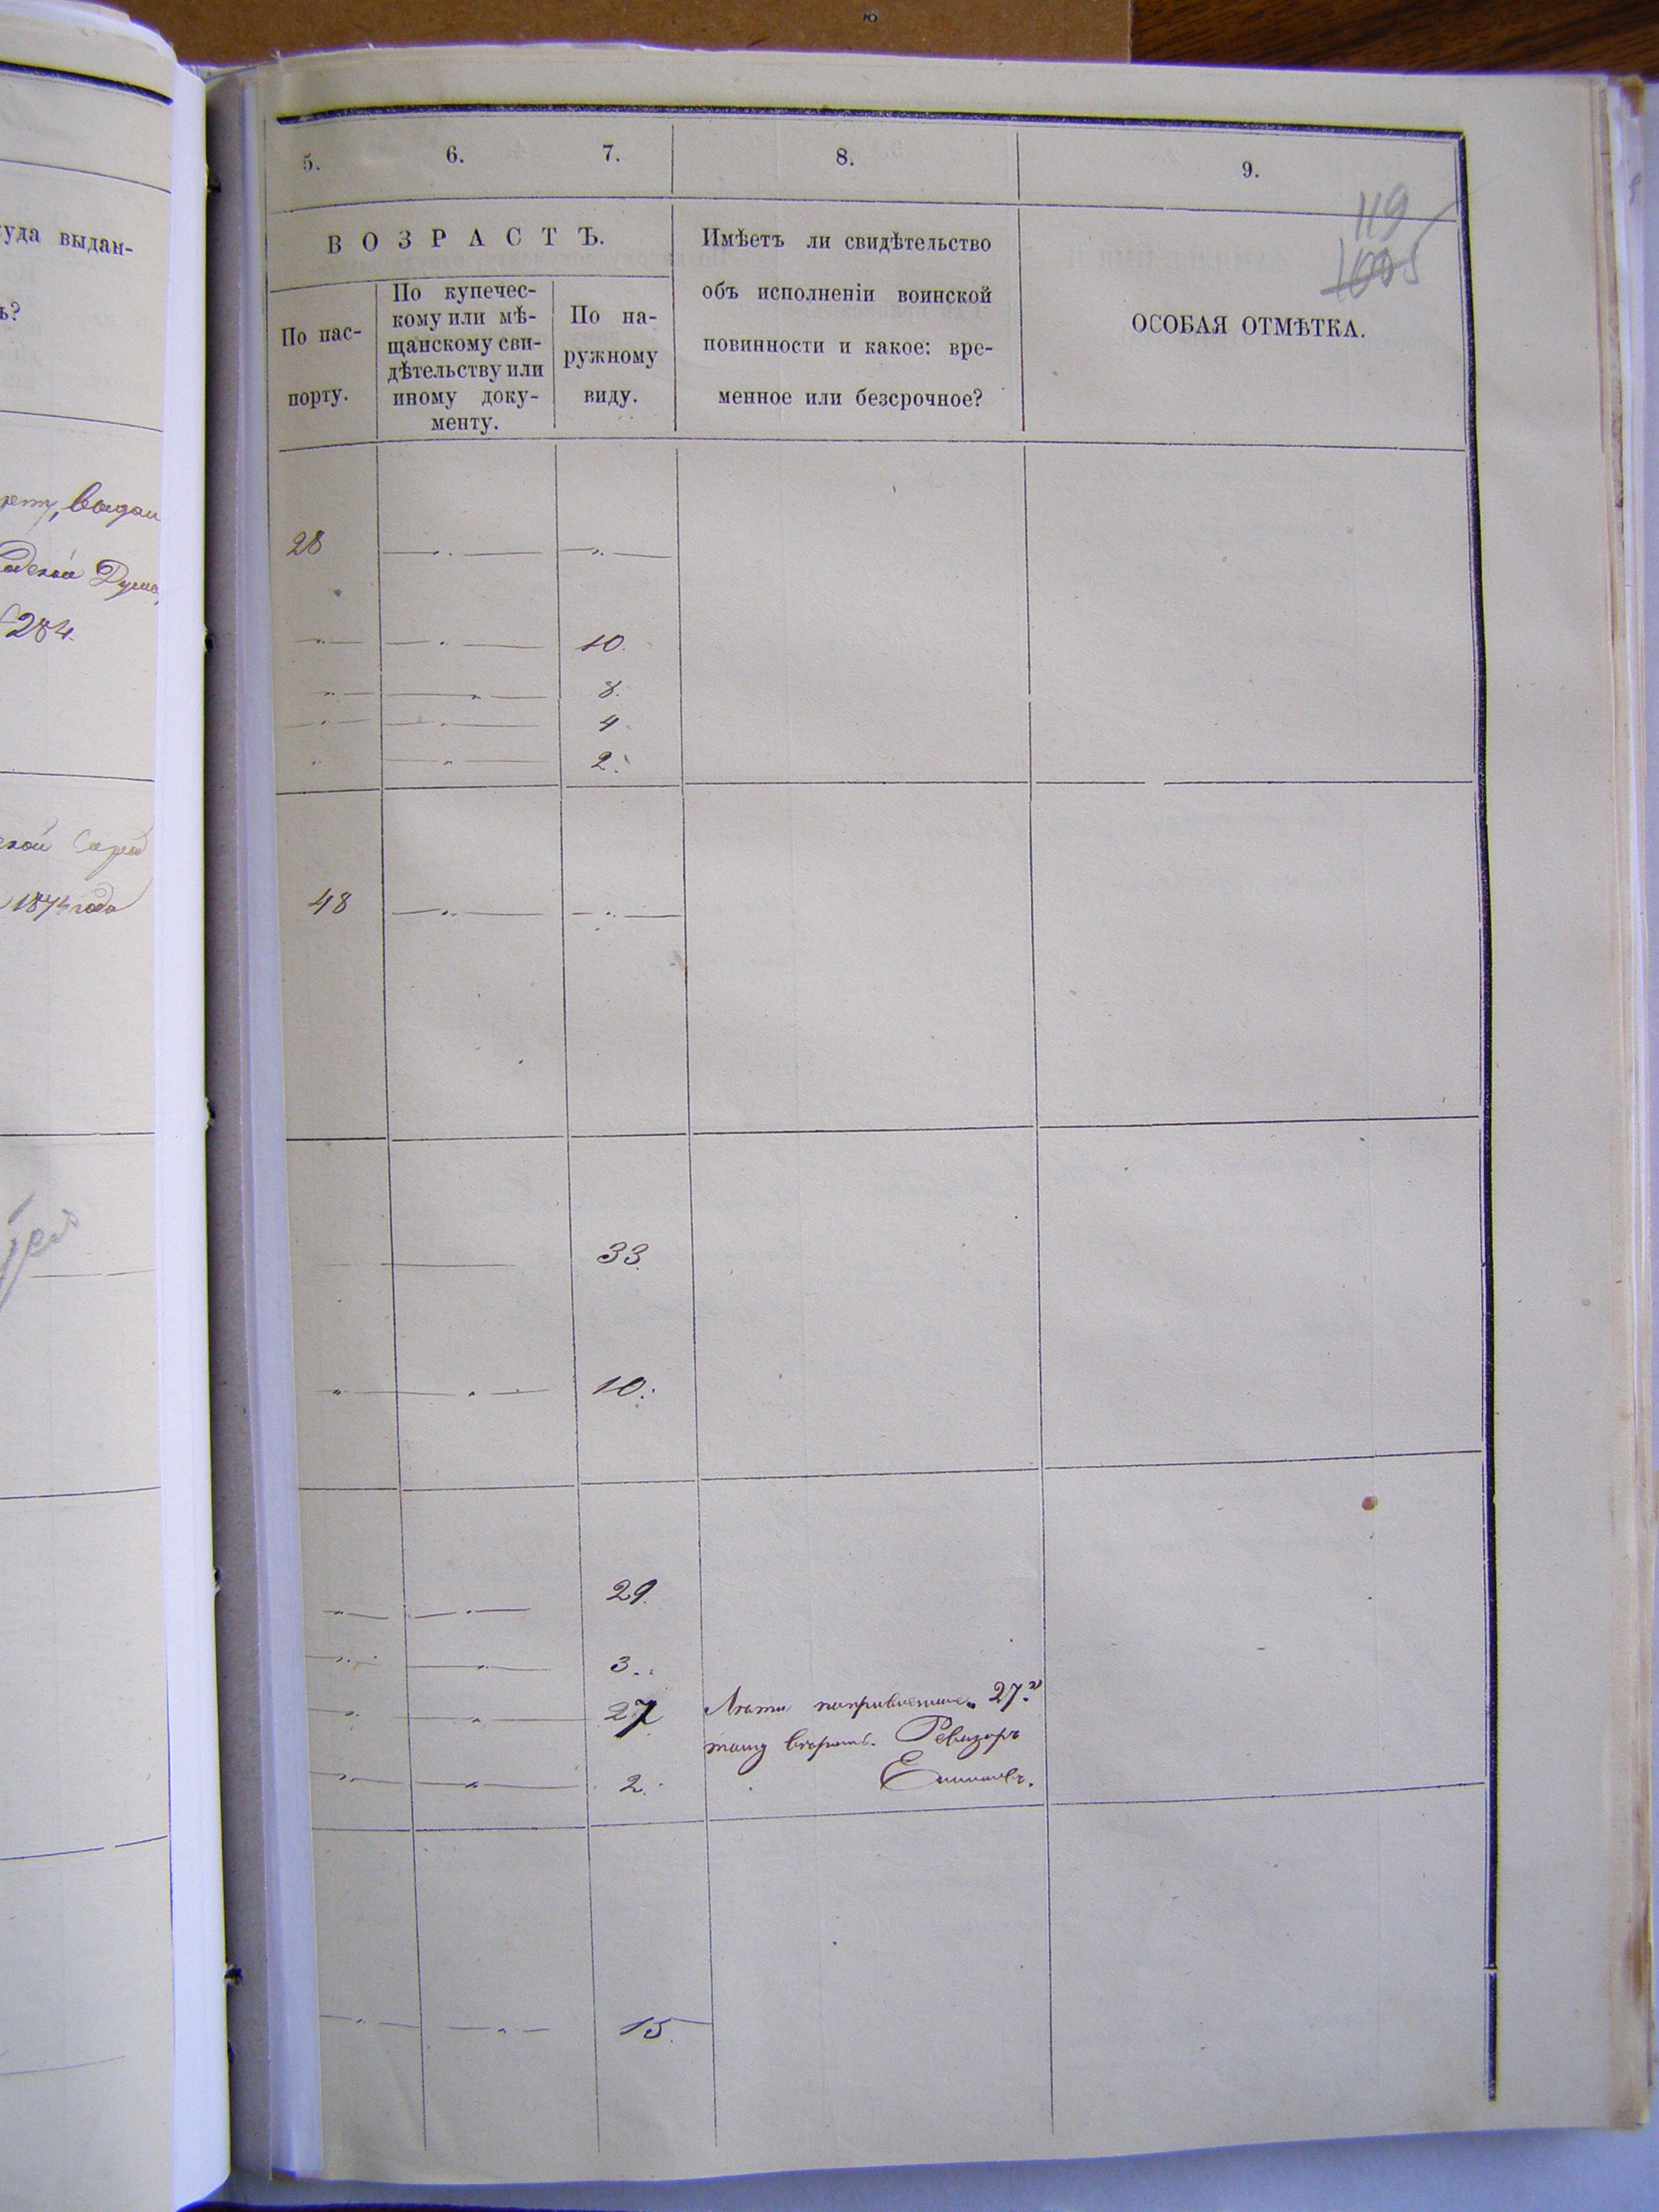 уда выдан-
ъ?
284.
1874 года
5.
6.
7.
8.
9.
119
1005
ВОЗРАСТЪ.
По пас-
порту.
По купечес-
кому или мѣ-
щанскому сви-
дѣтельству или
иному доку-
менту.
По на-
ружному
виду.
Имѣетъ ли свидѣтельство
объ исполненіи воинской
повинности и какое: вре-
менное или безсрочное?
ОСОБАЯ ОТМѢТКА.
28
10.
8.
4
2.
48
33.
10.
29.
3.
27
2.
Лѣта поправленные „27."
Ревизоръ
15.